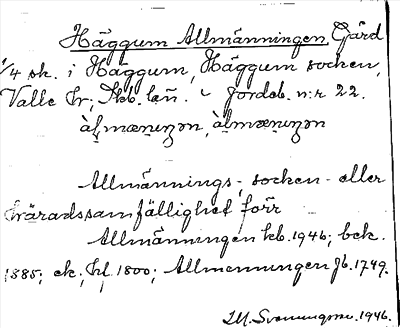 Häggum Allmänningen, Gård
1/4 sk. i Häggum, Häggum socken,
Valle hr; Skb. län. Jordeb. n:r 22.
àlmænıŋən, àlmænıŋən
Allmännings-, socken- eller
häradssamfällighet förr
Allmänningen kb. 1946; bek.
1885; ek; hfl 1800; Allmenningen Jb. 1749.
Svenungson. 1946.